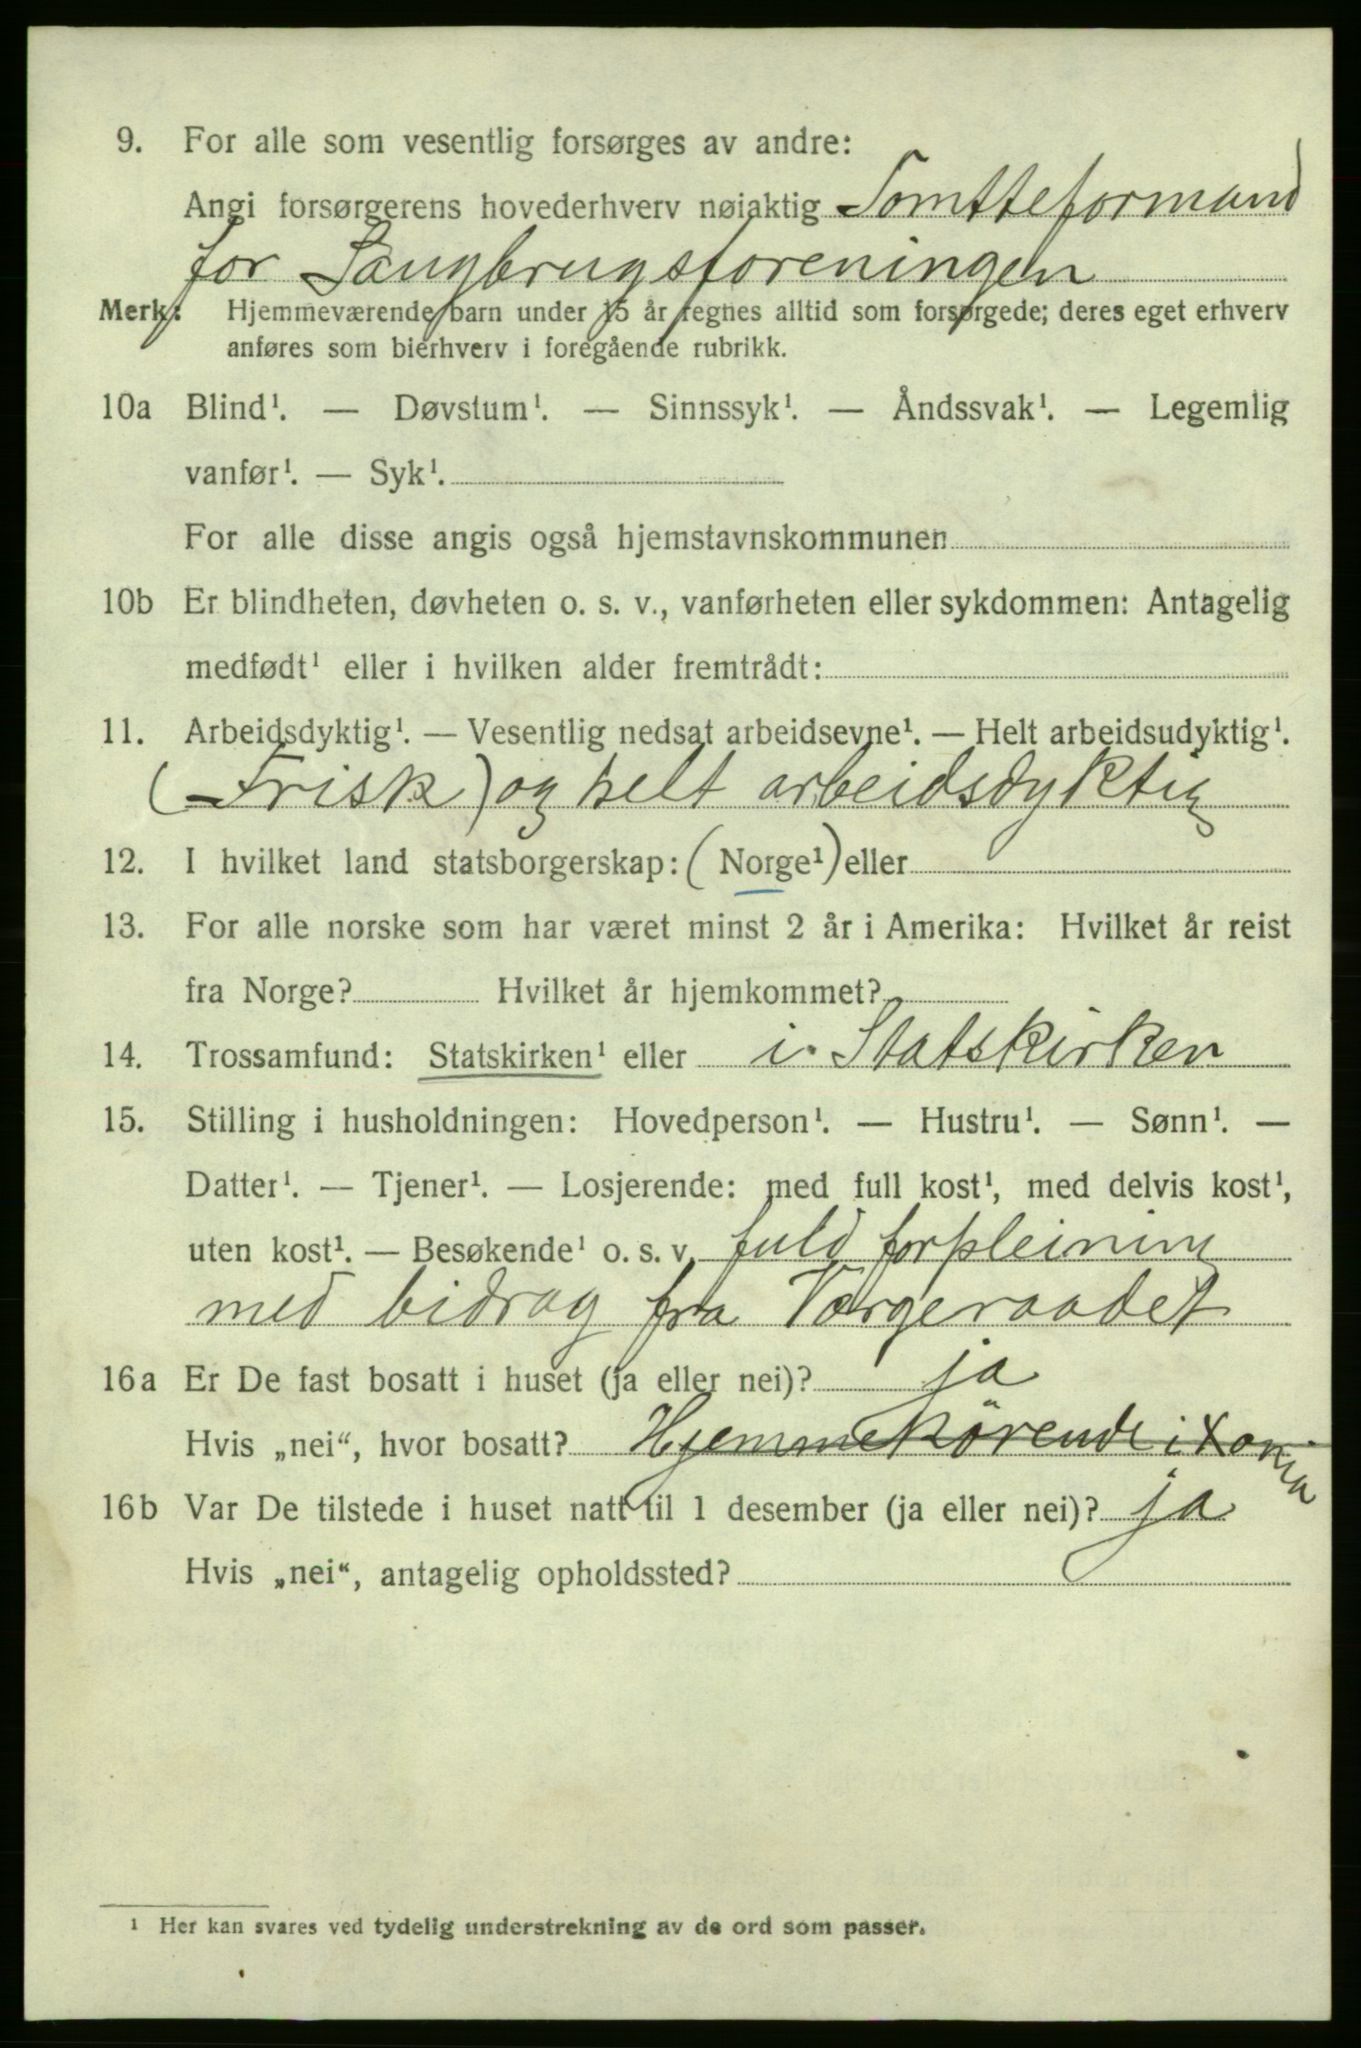 9. For alle som vesentlig forsørges av andre:
Angi forsørgerens hovederhverv nøiaktig Tomtteformand
for Saugbrugsforeningen
Merk: Hjemmeværende barn under 15 år regnes alltid som forsørgede; deres eget erhverv
anføres som bierhverv i foregående rubrikk.
10a Blind¹. — Døvstum¹. — Sinnssyk¹. — Åndssvak¹. — Legemlig
vanfør¹. — Syk¹.
For alle disse angis også hjemstavnskommunen
10b Er blindheten, døvheten o. s. v., vanførheten eller sykdommen: Antagelig
medfødt¹ eller i hvilken alder fremtrådt:
11. Arbeidsdyktig¹. — Vesentlig nedsat arbeidsevne¹. — Helt arbeidsudyktig¹.
(Frisk) og helt arbeidsdyktig
12. I hvilket land statsborgerskap: (Norge¹) eller
13. For alle norske som har været minst 2 år i Amerika: Hvilket år reist
fra Norge? Hvilket år hjemkommet?
14. Trossamfund: Statskirken¹ eller i Statskirken
15. Stilling i husholdningen: Hovedperson¹. — Hustru¹. — Sønn¹. —
Datter¹. — Tjener¹. — Losjerende: med full kost¹, med delvis kost¹,
uten kost¹. — Besøkende¹ o. s. v. fuld forpleining
med bidrag fra Værgeraadet
16a Er De fast bosatt i huset (ja eller nei)? ja
Hvis „nei“, hvor bosatt? Hjemmehörende i Xania
16b Var De tilstede i huset natt til 1 desember (ja eller nei)? ja
Hvis „nei“, antagelig opholdssted?
¹ Her kan svares ved tydelig understrekning av de ord som passer.